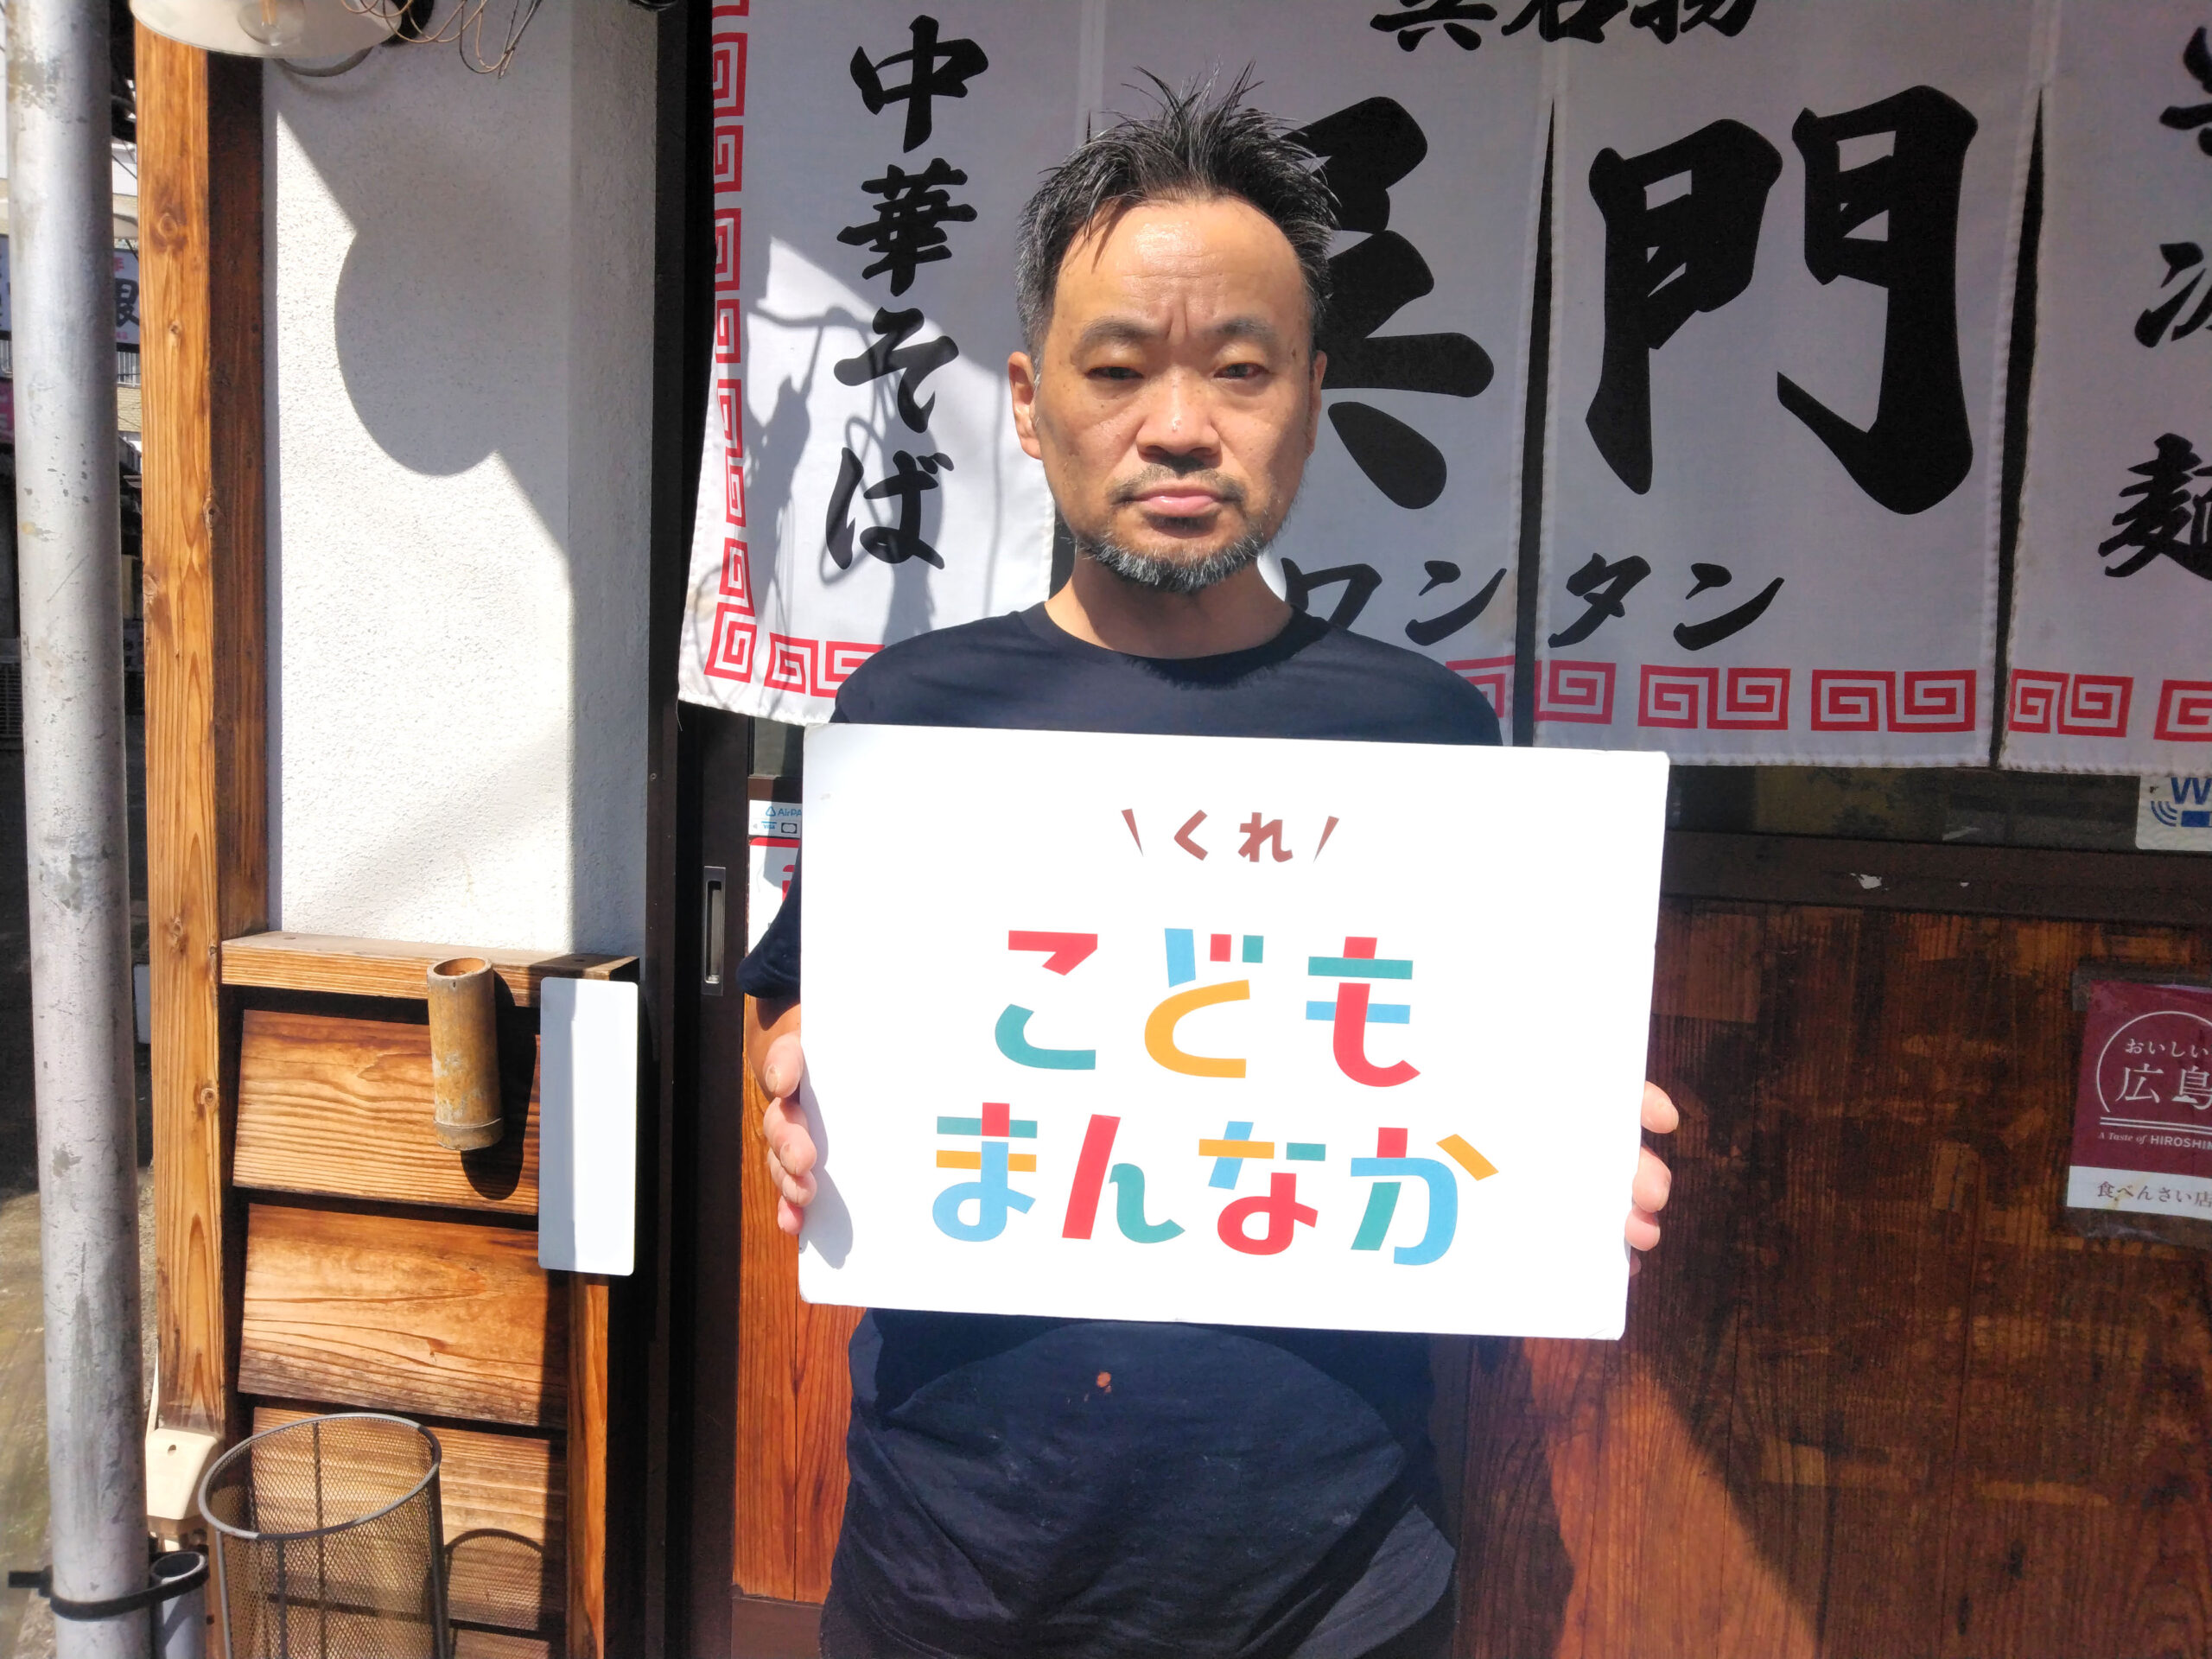 中華そば
呉名物
呉門
ワンタン
麺
\くれ/
こども
まんなか
おいしい
広島
A Taste of HIROSHIM
食べんさい店